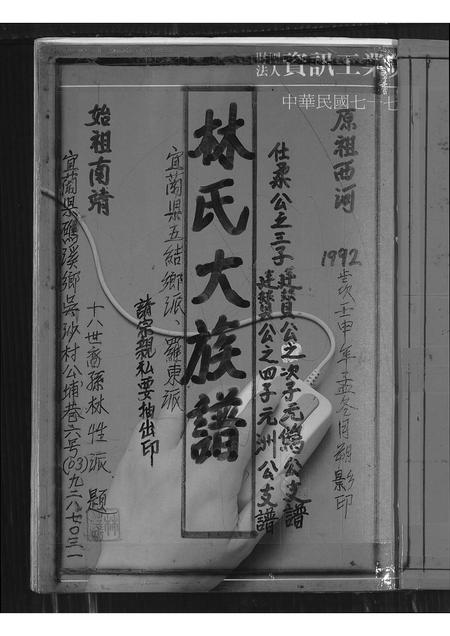 財團法人資訊工業
中華民國七十七
原祖西河
1992歲次壬申年孟冬月朔影印
仕柔公之三子
建贊公之次子元鷄公支譜
建贊公之四子元洲公支譜
林氏大族譜
宜蘭県五結鄉派、羅東派
請宗親私要抽出印
始祖南靖
十八世裔孫林性派 題
宜蘭県礁溪鄉吳沙村公埔巷六号(03)九二八七〇三一